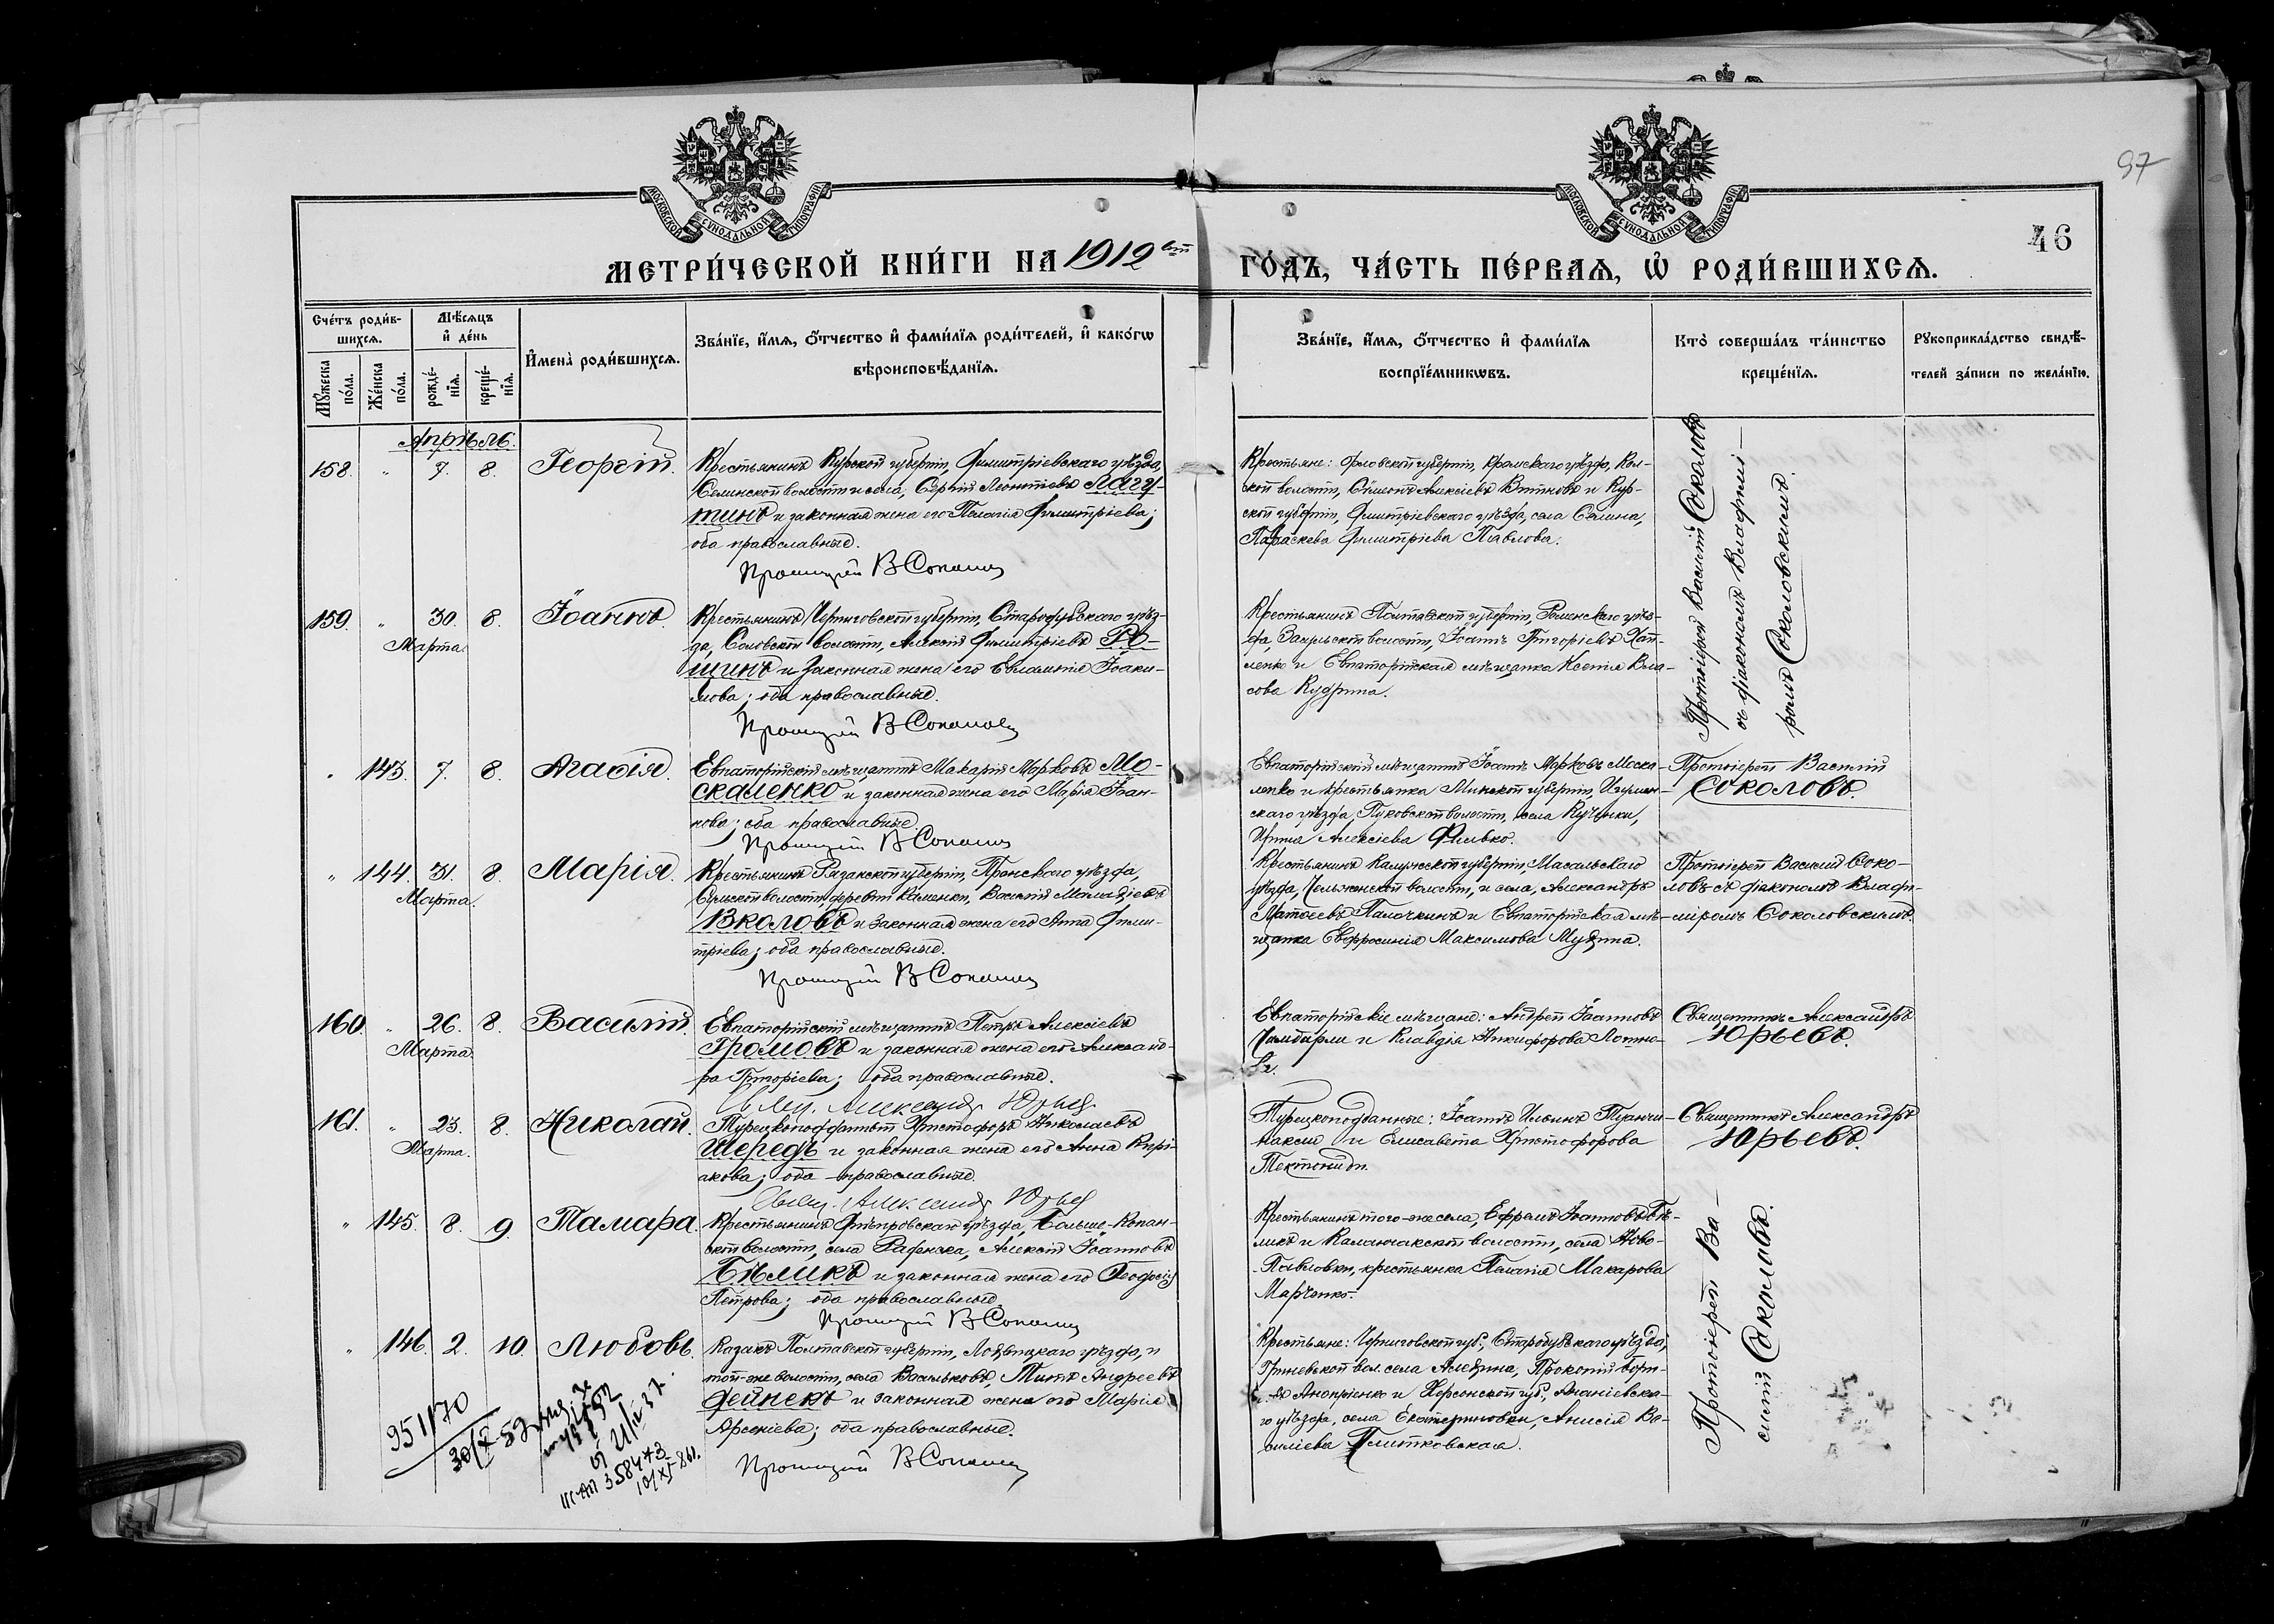 97
46
МОСКОВСКОЙ СѴНОДАЛЬНОЙ ТИПОГРАФІИ
МОСКОВСКОЙ СѴНОДАЛЬНОЙ ТИПОГРАФІИ
МЕТРИ́ЧЕСКОЙ КНИ́ГИ НА 1912 ГО́ДЪ, ЧА́СТЬ ПЕ́РВАѦ, Ѡ҆ РОДИ́ВШИХСѦ.
Сче́тъ роди́в-
шихсѧ.
Мꙋ́жеска по́ла.
Же́нска по́ла.
Мѣ́сѧцъ
и҆ де́нь
рожде́-
нїѧ.
креще́-
нїѧ.
И҆мена̀ роди́вшихсѧ.
Зва́нїе, и҆́мѧ, ѻ҆́тчество и҆ фами́лїѧ роди́телей, и҆ како́гѡ
вѣроисповѣ́данїѧ.
Зва́нїе, и҆́мѧ, ѻ҆́тчество и҆ фами́лїѧ
воспрїе́мникѡвъ.
Кто̀ соверша́лъ та́инство
креще́нїѧ.
Рꙋкоприкла́дство свидѣ́-
телей за́писи по жела́нїю.
Апрѣль.
158. " 7. 8. Георгій.
Крестьянинъ Курской губерніи, Димитріевскаго уѣзда,
Селинской волости и села, Сергій Леонтіевъ Лагу-
тинъ и законная жена его Пелагія Димитріева;
оба православные.
Протоіерей В Соколовъ
Крестьяне: Орловской губерніи, Кромскаго уѣзда, Кол-
ской волости, Симеонъ Алексіевъ Витновъ и Кур-
ской губерніи, Димитріевскаго уѣзда, села Селина,
Параскева Димитріева Павлова.
Протоіерей Василій Соколовъ
съ діакономъ Владимі-
ромъ Соколовскимъ.
159. " 30. 8. Іоаннъ.
Марта.
Крестьянинъ Черниговской губерніи, Стародубскаго уѣз-
да, Соловской волости, Алексій Димитріевъ Ро-
щинъ и законная жена его Евлампія Іоаки-
мова; оба православные.
Протоіерей В Соколовъ
Крестьянинъ Полтавской губерніи, Роменскаго уѣз-
да, волости, Іоаннъ Григоріевъ Хап-
ленко и Евпаторійская мѣщанка Ксенія Вла-
сова Кудрина.
" 143. 7. 8. Агаѳія.
Евпаторійскій мѣщанинъ Макарій Марковъ Мо-
скаленко и законная жена его Марія Іоан-
нова; оба православные.
Протоіерей В Соколовъ
Евпаторійскій мѣщанинъ Іоаннъ Марковъ Моска-
ленко и крестьянка Минской губерніи, Игумен-
скаго уѣзда, Пуховской волости, села Кученки,
Ирина Алексіева Филько.
Протоіерей Василій
Соколовъ.
" 144. 31. 8. Марія.
Марта.
Крестьянинъ Рязанской губерніи, Пронскаго уѣзда,
волости, деревни Каменки, Василій
Вколовъ и законная жена его Анна Дими-
тріева; оба православные.
Протоіерей В Соколовъ
Крестьянинъ Калужской губерніи, Масальскаго
уѣзда, волости, и села, Александръ
Матѳеевъ Палочкинъ и Евпаторійская мѣ-
щанка Евфросинія Максимова Музина.
Протоіерей Василій Соко-
ловъ съ діакономъ Влади-
міромъ Соколовскимъ.
160. " 26. 8. Василій.
Марта.
Евпаторійскій мѣщанинъ Петръ Алексіевъ
Громовъ и законная жена его Александ-
ра Григоріева; оба православные.
Свящ. Александръ Юрьевъ
Евпаторійскіе мѣщане: Андрей Іоанновъ
и Клавдія Никифорова
Священникъ Александръ
Юрьевъ.
161. " 23. 8. Николай.
Марта.
Турецкоподданный Христофоръ Николаевъ
Шередъ и законная жена его Анна Кирі-
акова; оба православные.
Свящ. Александръ Юрьевъ
Турецкоподданные: Іоаннъ Ильинъ
и Елисавета Христофорова
Тектониди.
Священникъ Александръ
Юрьевъ.
" 145. 8. 9. Тамара.
Крестьянинъ Днѣпровскаго уѣзда, Больше-Копан-
ской волости, села Раденска, Алексій Іоанновъ
Бѣликъ и законная жена его Ѳеодосія
Петрова; оба православные.
Протоіерей В Соколовъ
Крестьянинъ того-же села, Ефремъ Іоанновъ Бѣ-
ликъ и Каланчакской волости, села Ново-
Павловки, крестьянка Пелагія Макарова
Марченко.
Протоіерей Ва-
силій Соколовъ.
" 146. 2. 10. Любовь.
Козакъ Полтавской губерніи, Лохвицкаго уѣзда, и
той-же волости, села Васильковъ, Титъ Андреевъ
Дейнекъ и законная жена его Марія
Арсеніева; оба православные.
Протоіерей В Соколовъ
Крестьяне: Черниговской губ., Стародубскаго уѣзда,
Гриневской вол. села Алефина, Прокопій
Аноприенко и Херсонской губ., Ананіевска-
го уѣзда, села Екатериновки, Анисія Ва-
силіева Плитковская.
951/70
30/X-52
358473